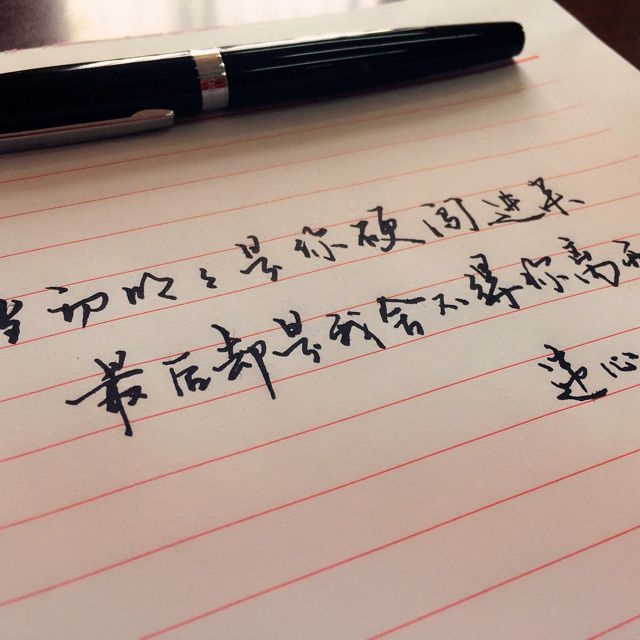 当初明々是你硬闯进来
最后却是我舍不得你离开
迷心